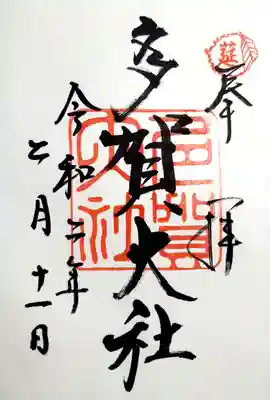 莚
奉拝
多賀大社
多賀
大社
令和二年
七月十一日